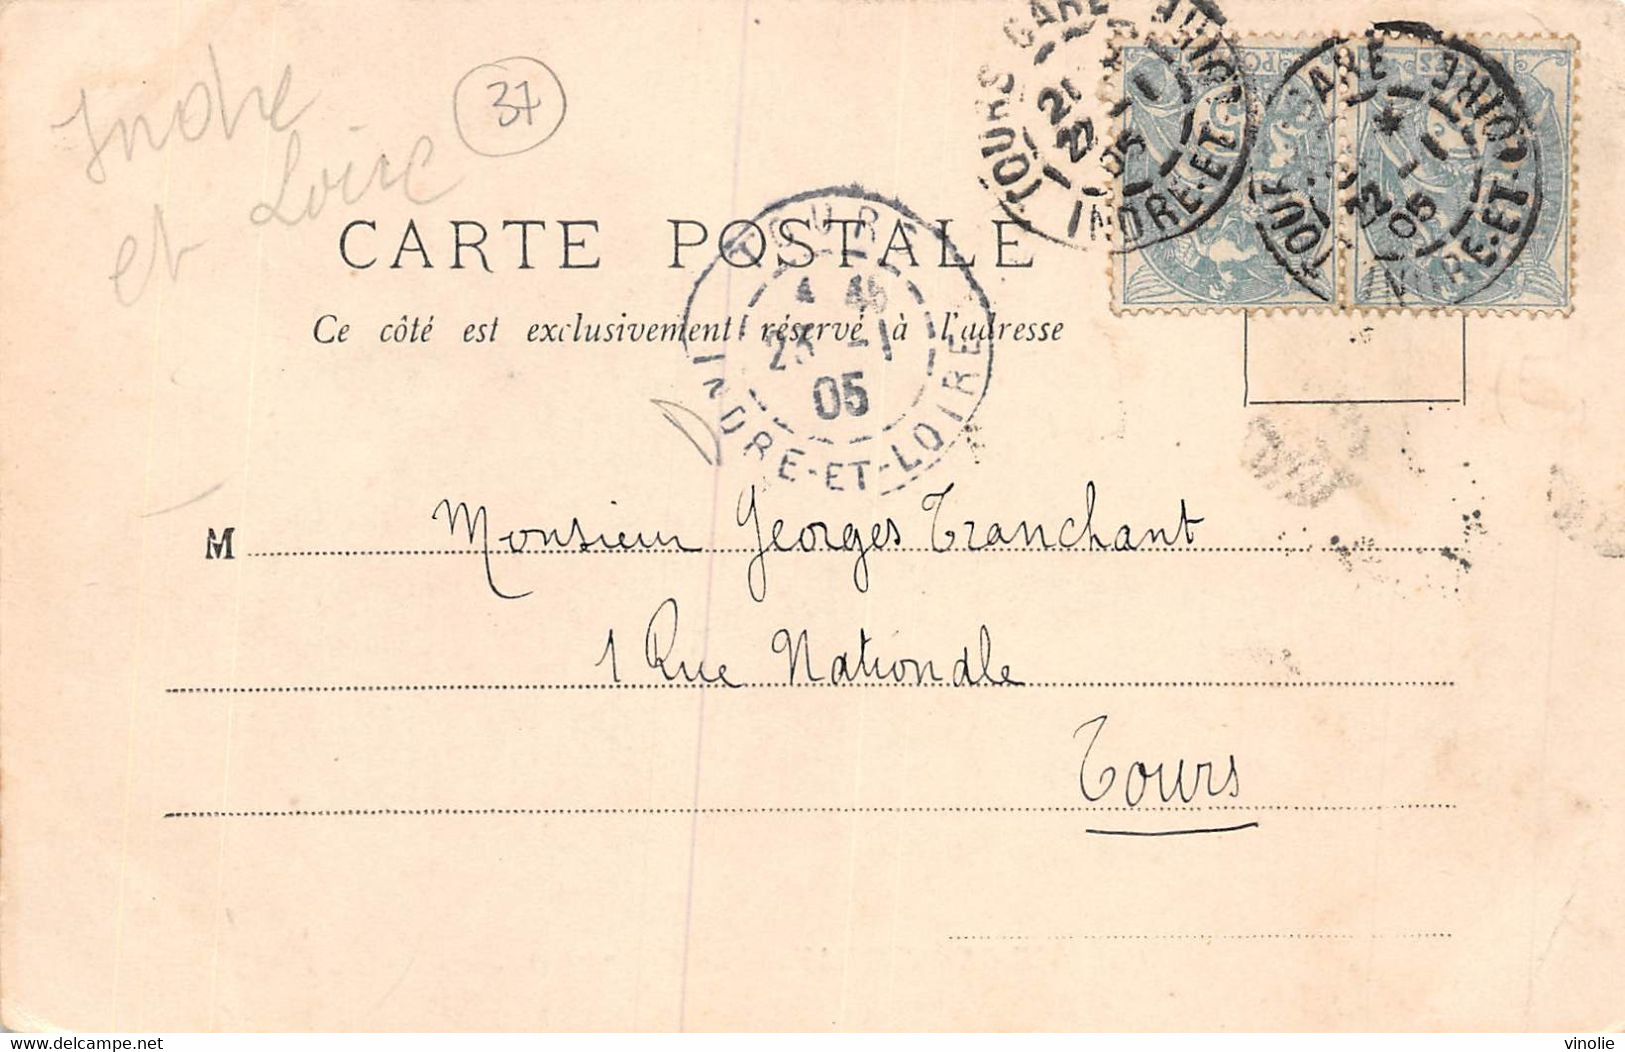 Indre
et Loire
37
CARTE POSTALE
Ce côté est exclusivement réservé à l'adresse
TOURS GARE
INDRE-ET-LOIRE
05
TOURS GARE
INDRE-ET-LOIRE
05
TOURS
4 45
23 - 1
05
INDRE-ET-LOIRE
M Monsieur Georges Tranchant
1 Rue Nationale
Tours
www.delcampe.net
vinolie